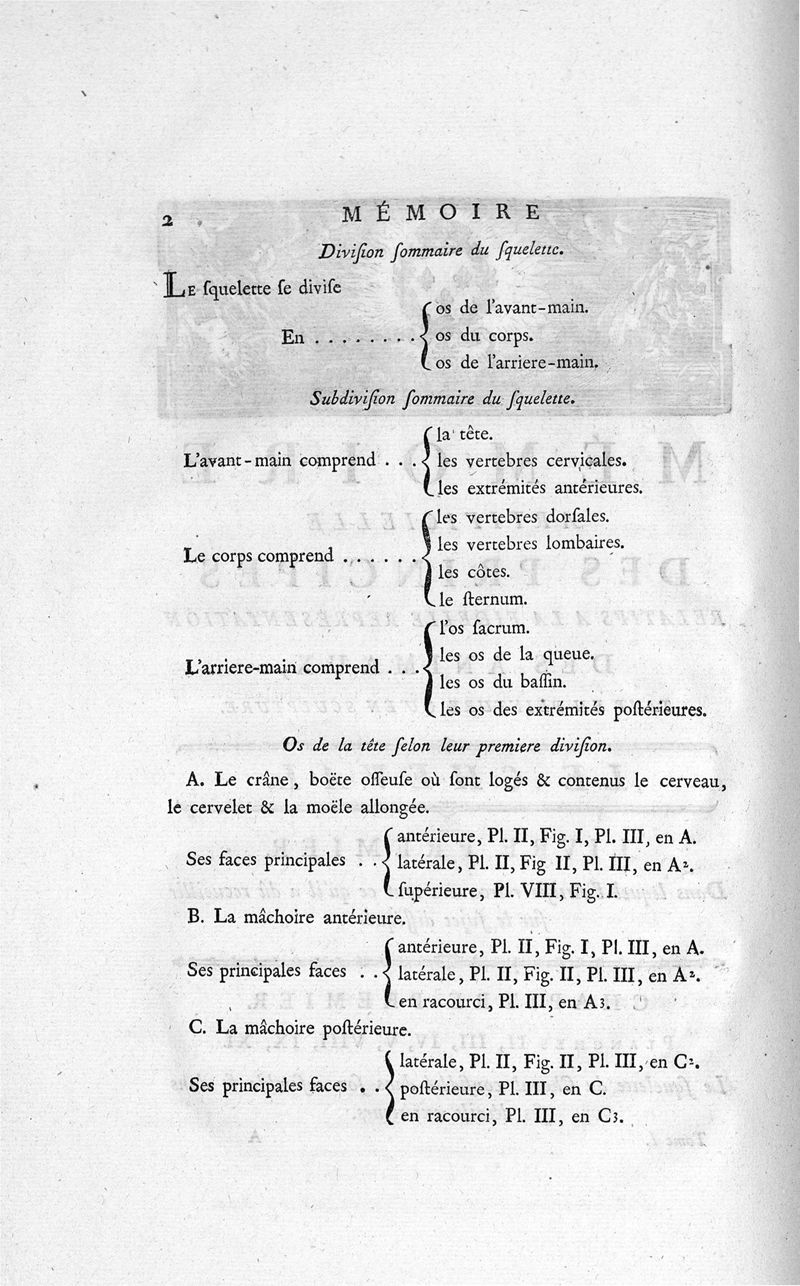 2 MÉMOIRE
Diviſion ſommaire du ſquelette.
LE ſquelette ſe diviſe
os de l'avant-main.
En . . . . . . . . os du corps.
os de l'arriere-main.
Subdiviſion ſommaire du ſquelette.
la tête.
L'avant-main comprend . . . les vertebres cervicales.
les extrémités antérieures.
les vertebres dorſales.
les vertebres lombaires.
Le corps comprend . . . . . .
les côtes.
le ſternum.
l'os ſacrum.
les os de la queue.
L'arriere-main comprend . . .
les os du baſſin.
les os des extrémités poſtérieures.
Os de la tête ſelon leur premiere diviſion.
A. Le crâne, boëte oſſeuſe où ſont logés & contenus le cerveau,
le cervelet & la moële allongée.
antérieure, Pl. II, Fig. I, Pl. III, en A.
Ses faces principales . . latérale, Pl. II, Fig II, Pl. III, en A2.
ſupérieure, Pl. VIII, Fig. I.
B. La mâchoire antérieure.
antérieure, Pl. II, Fig. I, Pl. III, en A.
Ses principales faces . . latérale, Pl. II, Fig. II, Pl. III, en A2.
en racourci, Pl. III, en A3.
C. La mâchoire poſtérieure.
latérale, Pl. II, Fig. II, Pl. III, en C2.
Ses principales faces . . poſtérieure, Pl. III, en C.
en racourci, Pl. III, en C3.